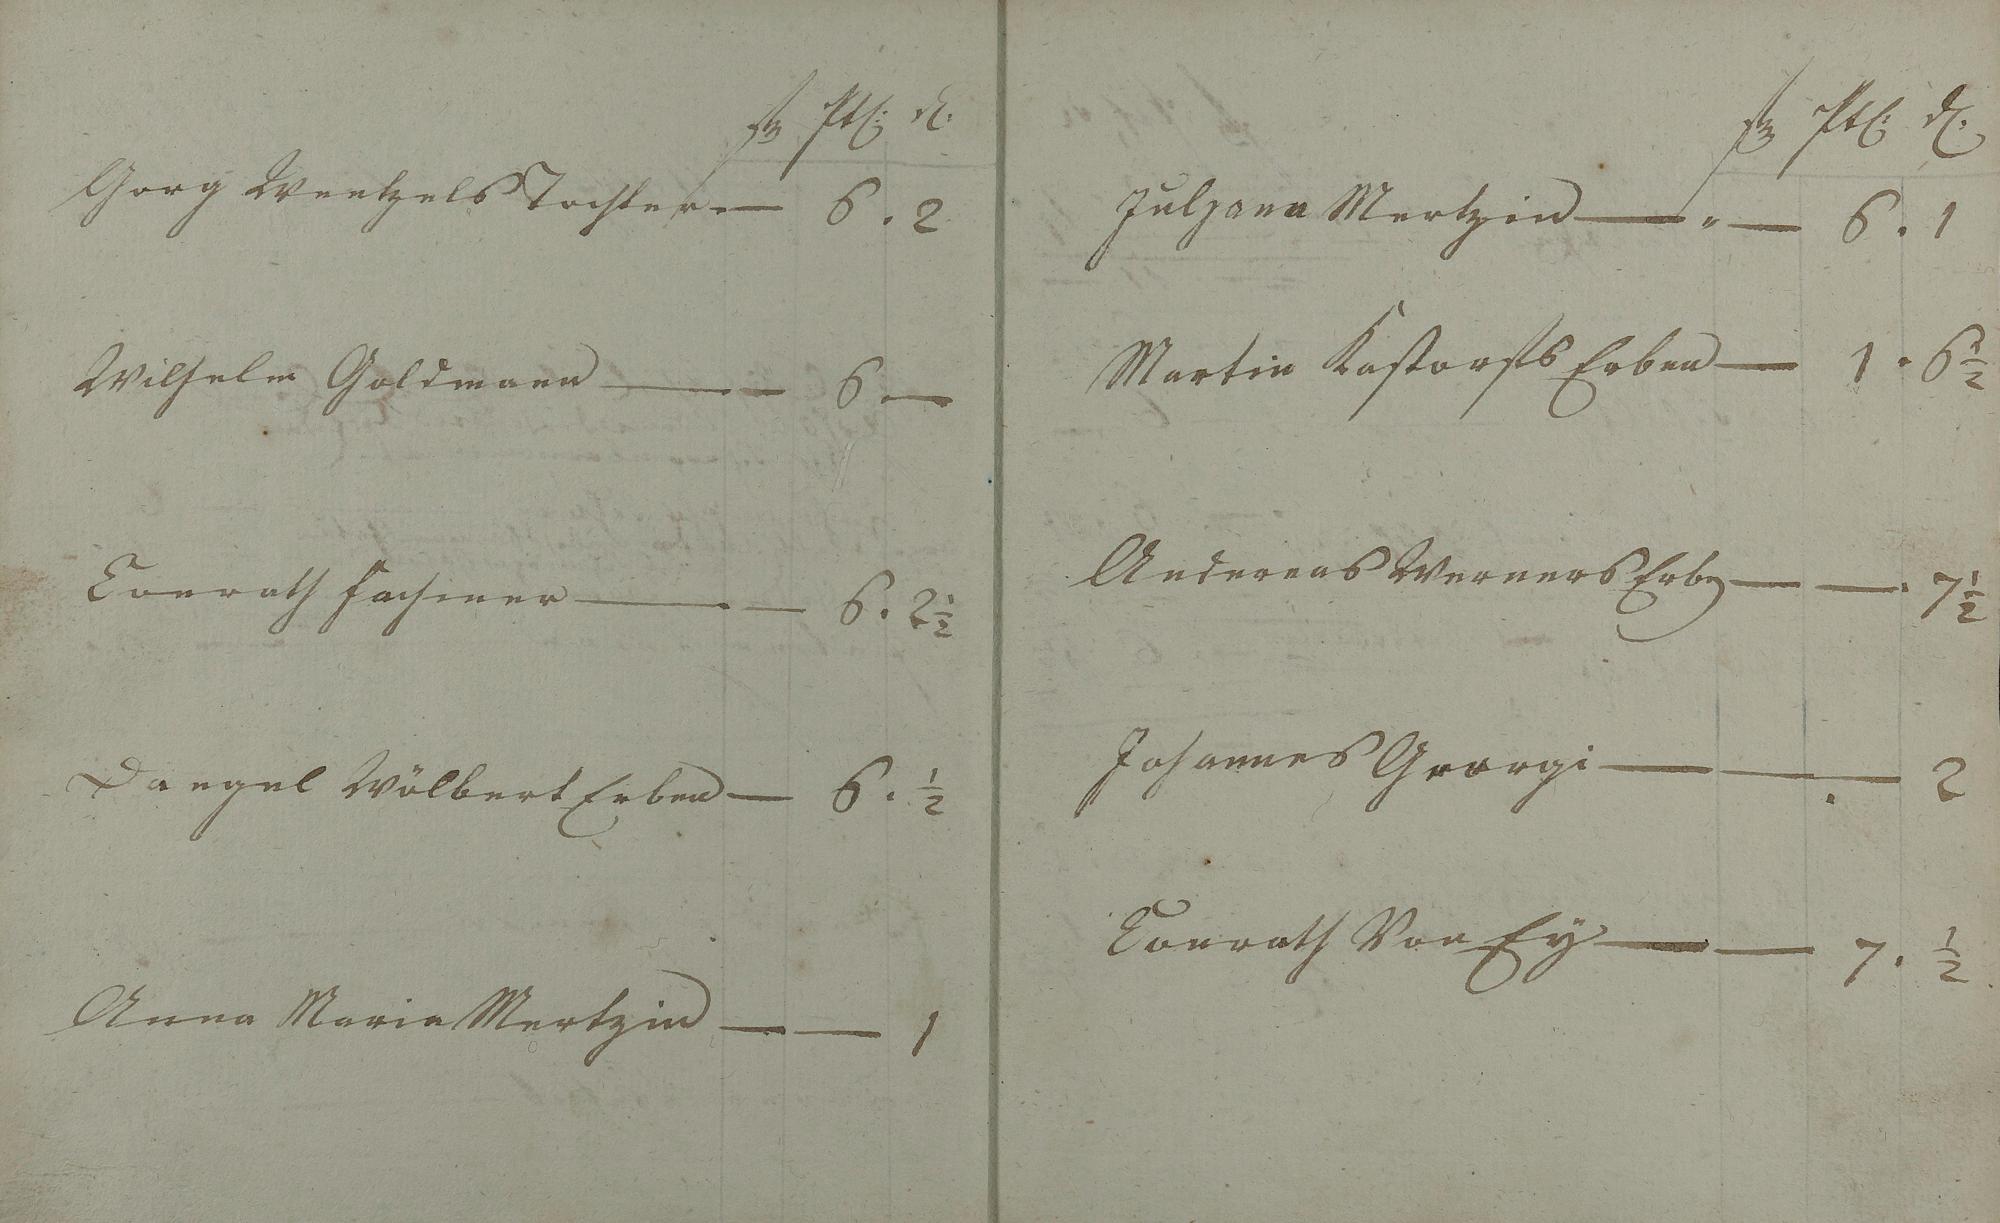 fl Ptl: d:
Gorg Wentzels Tochter — 6 . 2
Wilhelm Goldmann — — 6 . —
Conrath Fachiner — — 6 . 2 1/2
Dangel Wölbert Erben — 6 . 1/2
Anna Maria Mertzin — — 1
fl Ptl: d:
Juljana Mertzin — " — 6 . 1
Martin Kastorsts Erben — 1 . 6 1/2
Andereas Werners Erben — — . 7 1/2
Johannes Georgi — — — 2
Conrath Von Ey — — 7 . 1/2